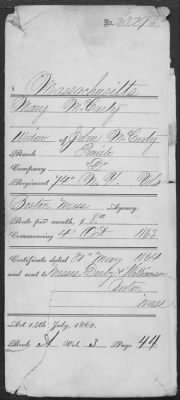 No. 23,295
Massachusetts
Mary McCurty
Widow of John McCurty
Rank Private
Company "C"
Regiment 74" N.Y. Vols
Boston Mass Agency.
Rate per month, $ 8 00
Commencing 4" Oct 1862
Certificate dated 31" May 1864
and sent to Messrs Derby & Williamson
Boston
Mass
Act 14th July, 1862.
Book A Vol. 3 Page 44